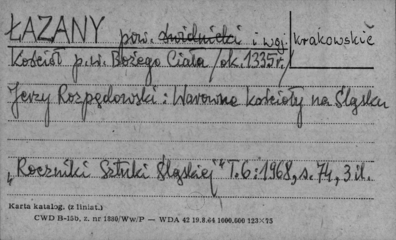 ŁAZANY pow. świdnicki i woj. krakowskie
Kościół p.w. Bożego Ciała /ok. 1335 r./
Jerzy Rozpędowski: Warowne kościoły na Śląsku
„Roczniki Sztuki Śląskiej" T.6: 1968, s. 74, 3 il.
Karta katalog. (z liniat.)
CWD H-15b, z. nr 1330/Ww/P — WDA 42 19.8.64 1.000.000 125×75